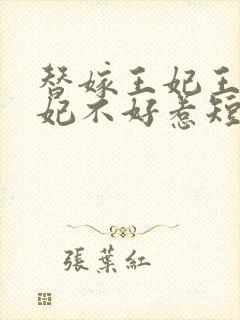 替嫁王妃王
妃不好惹短
張葉紅